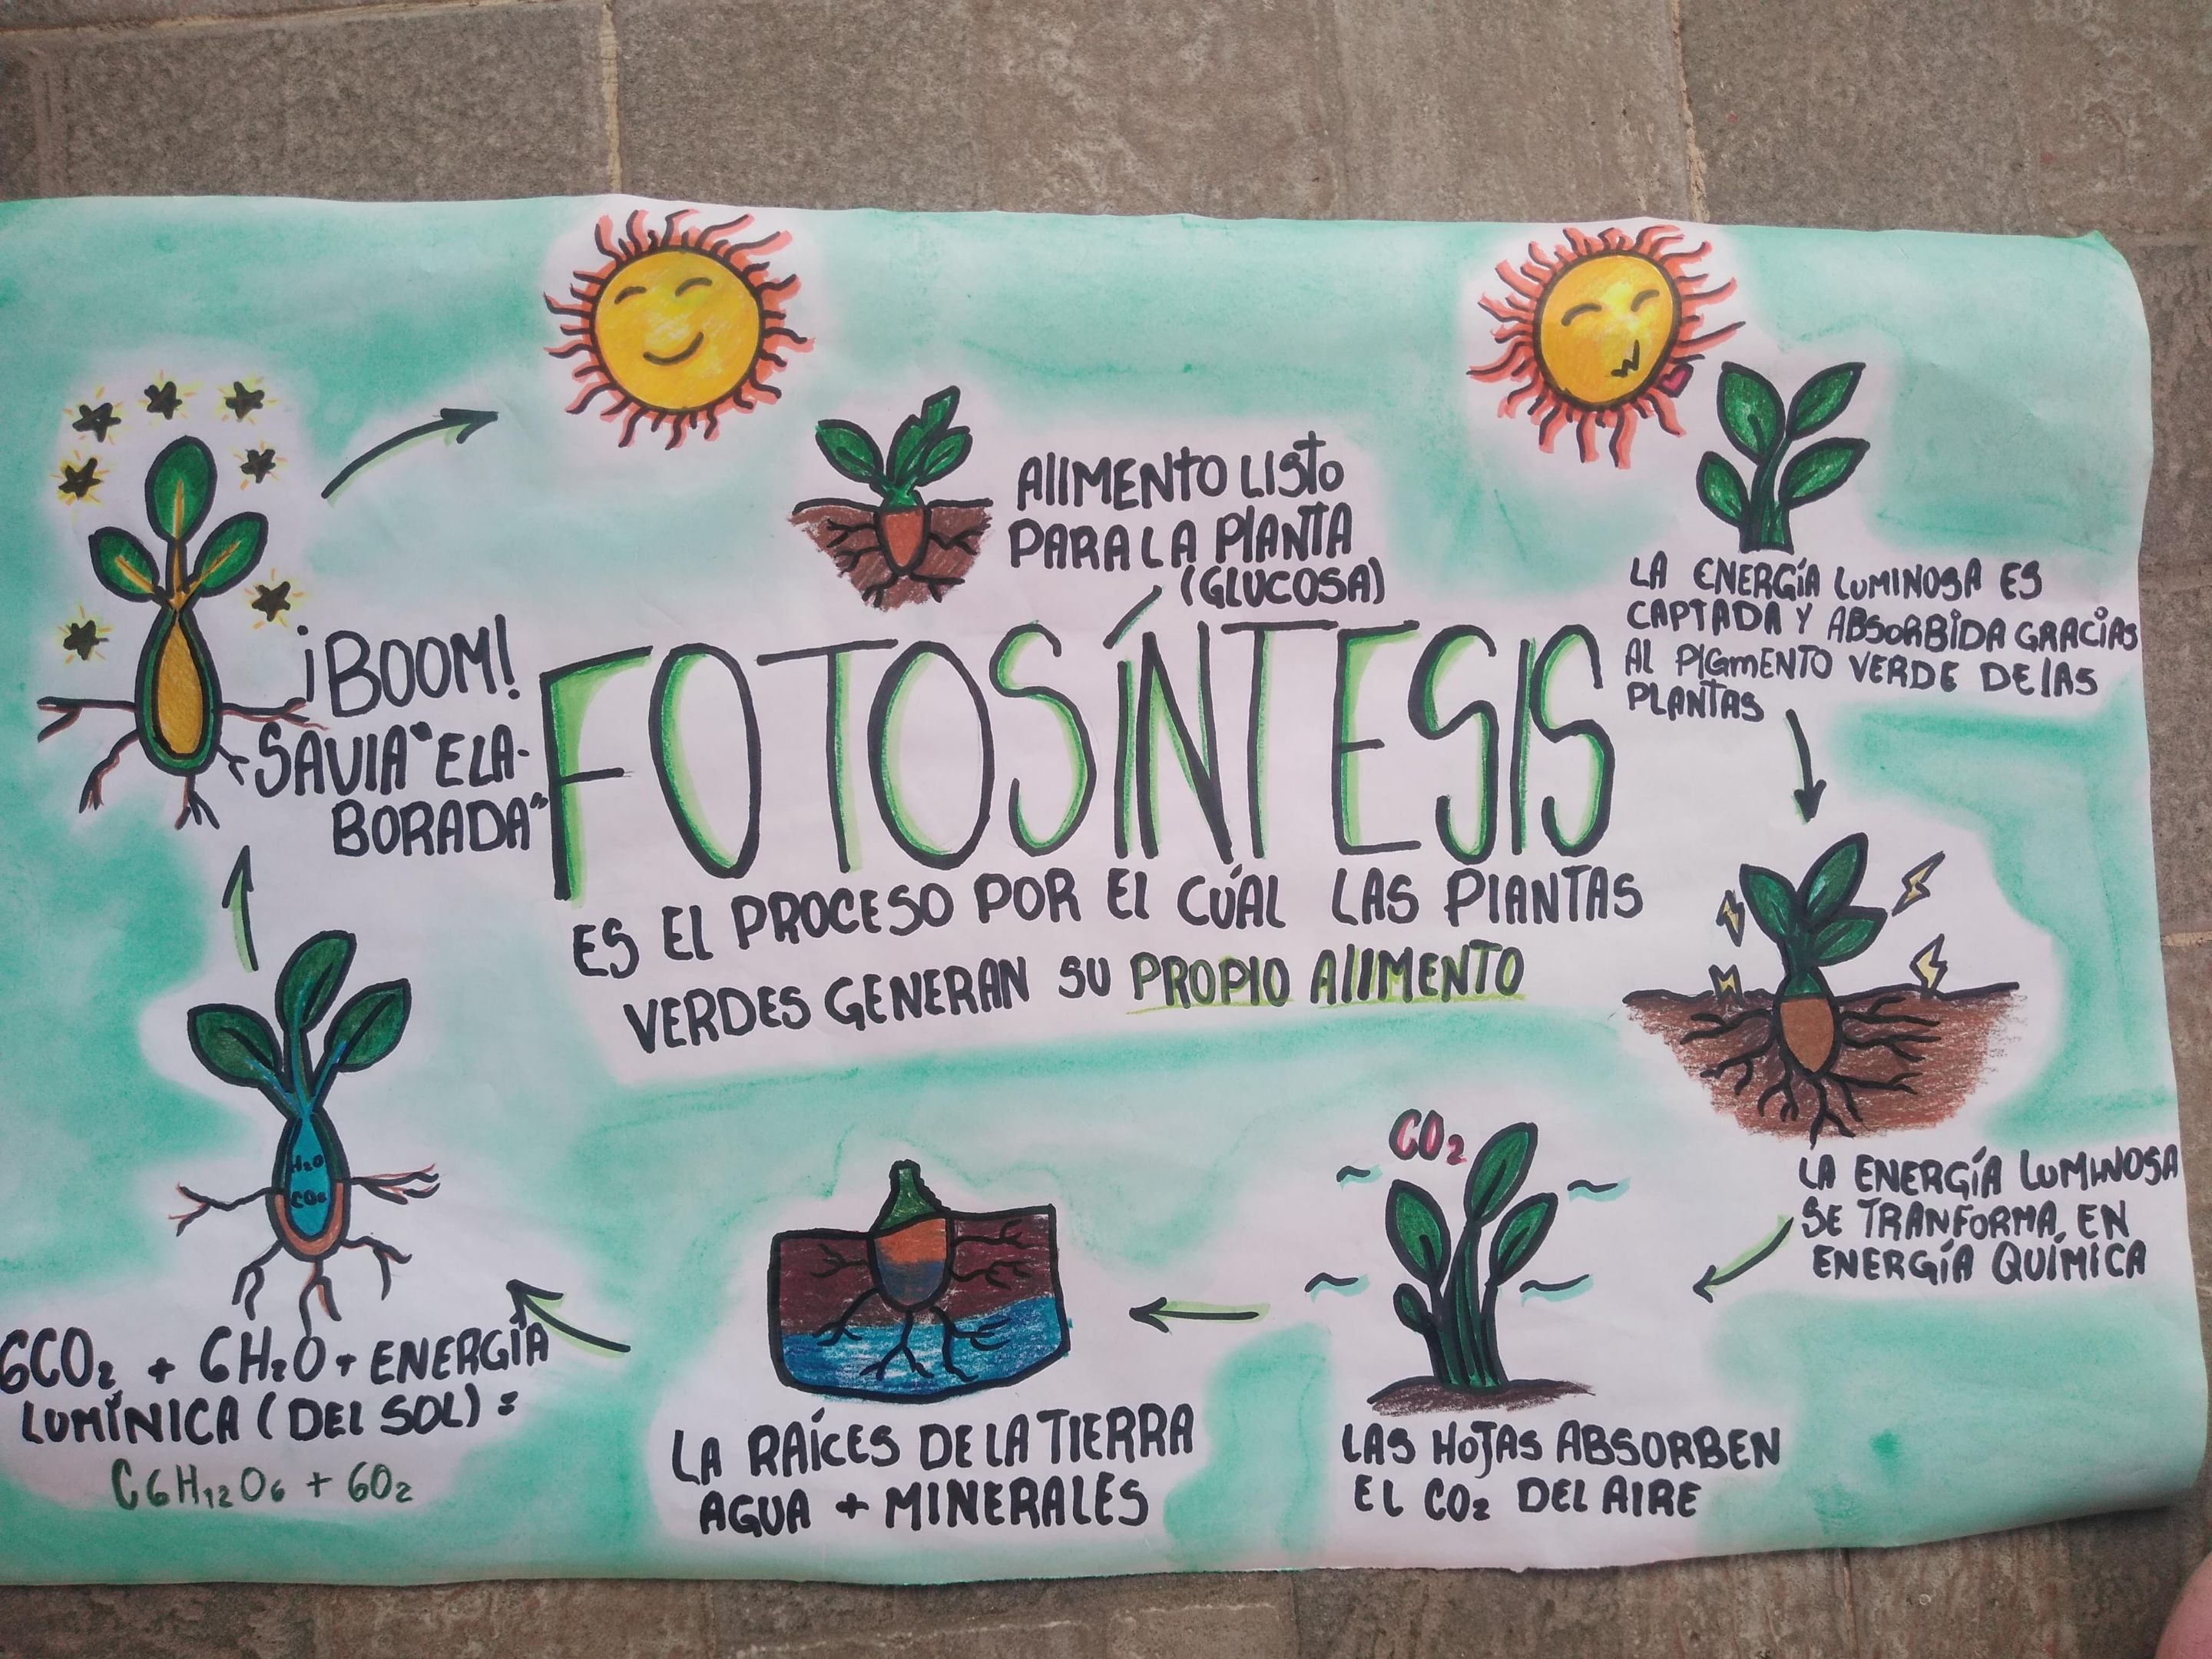 FOTOSÍNTESIS
ES EL PROCESO POR EL CÚAL LAS PLANTAS
VERDES GENERAN SU PROPIO ALIMENTO
LA ENERGÍA LUMINOSA ES
CAPTADA Y ABSORBIDA GRACIAS
AL PIGMENTO VERDE DE LAS
PLANTAS
LA ENERGÍA LUMINOSA
SE TRANFORMA EN
ENERGÍA QUÍMICA
CO₂
LAS HOJAS ABSORBEN
EL CO₂ DEL AIRE
LA RAÍCES DE LA TIERRA
AGUA + MINERALES
H₂O
CO₂
6CO₂ + 6H₂O + ENERGÍA
LUMÍNICA (DEL SOL) =
C6H₁₂O₆ + 6O₂
¡BOOM!
SAVIA "ELA-
BORADA"
ALIMENTO LISTO
PARA LA PLANTA
(GLUCOSA)